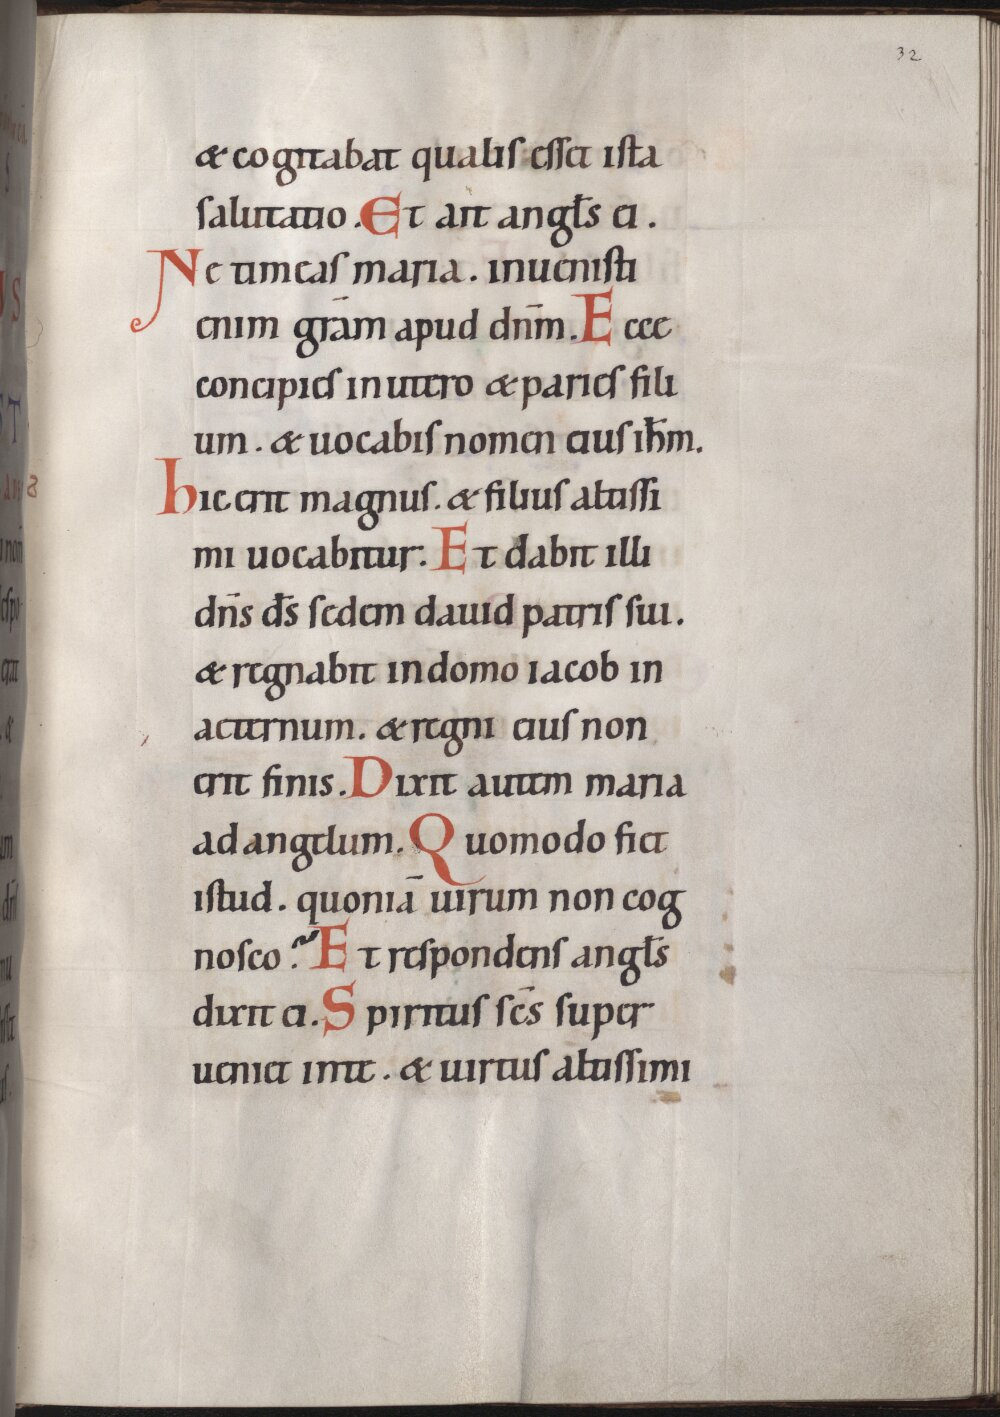 32
& cogitabat qualis esset ista
salutatio. Et ait angl̄s ei.
Ne timeas maria. inuenisti
enim grām apud dn̄m. Ecce
concipies in utero & paries fili
um. & uocabis nomen eius ih̄m.
hic erit magnus. & filius altissi
mi uocabitur. Et dabit illi
dn̄s d̄s sedem dauid patris sui.
& regnabit in domo iacob in
aeternum. & regni eius non
erit finis. Dixit autem maria
ad angelum. Quomodo fiet
istud. quoniā uirum non cog
nosco? Et respondens angl̄s
dixit ei. Spiritus sc̄s super
ueniet in te. & uirtus altissimi